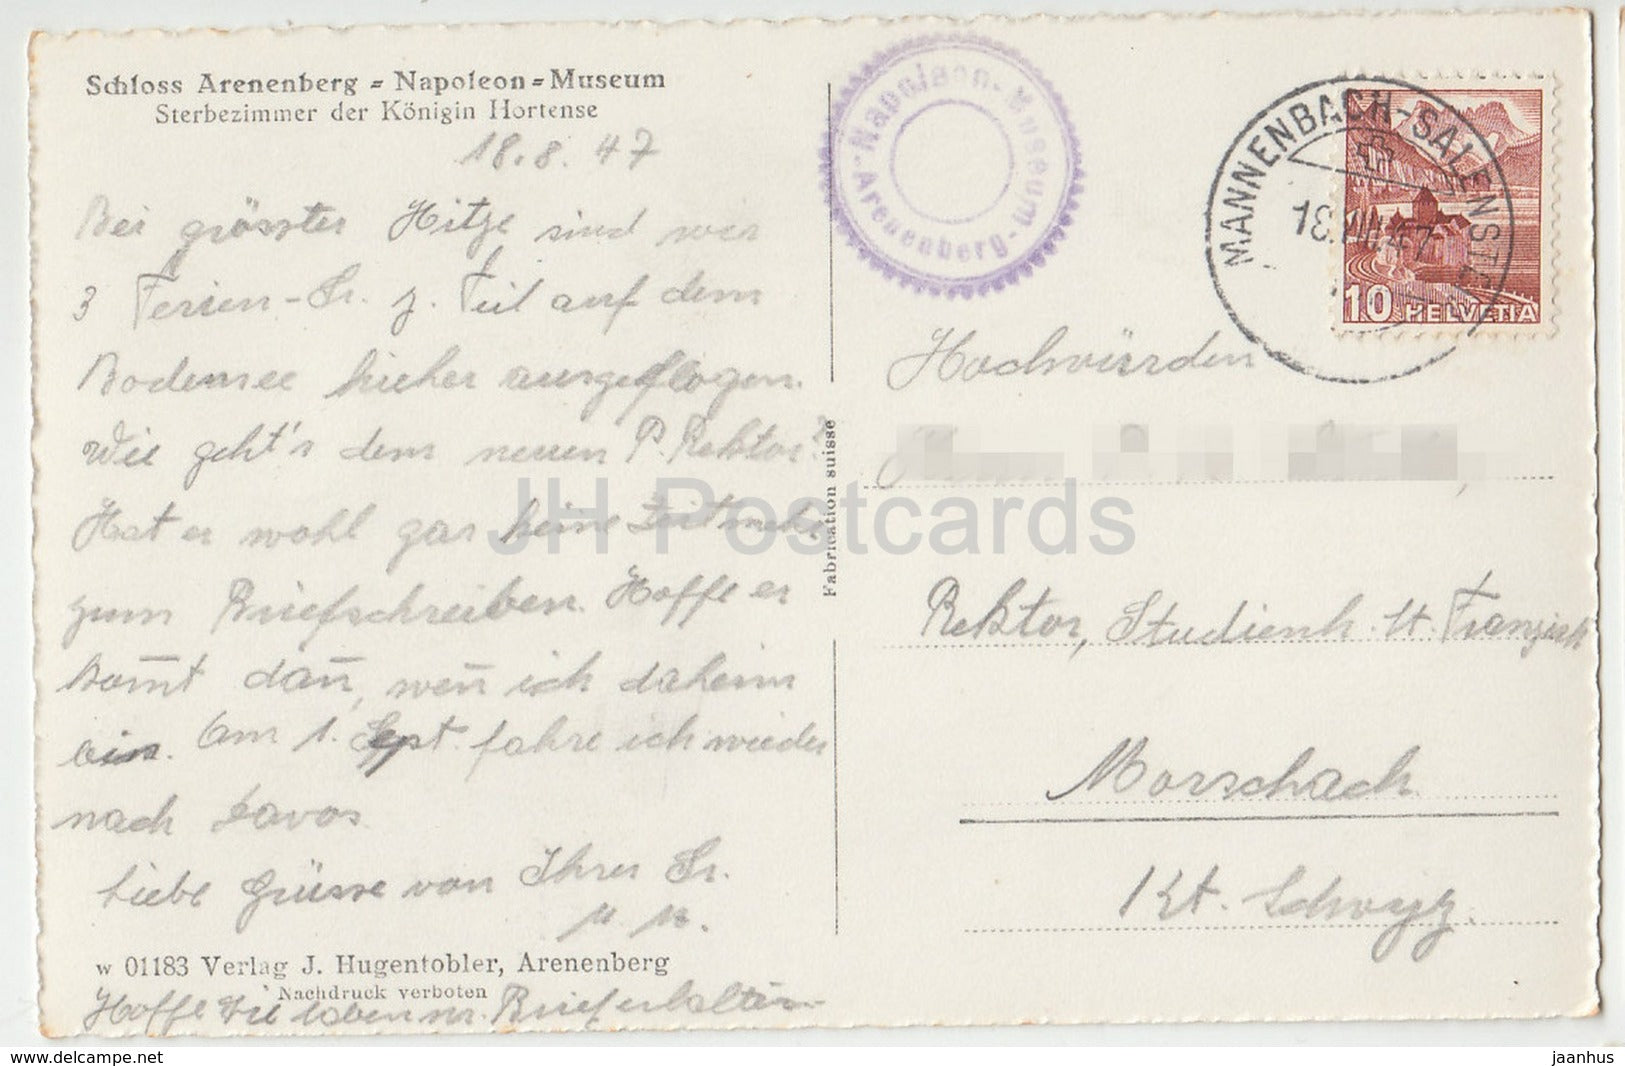 Schloss Arenenberg = Napoleon=Museum
Sterbezimmer der Königin Hortense
18. 8. 47
Bei grösster Hitze sind wir
3 Ferien-Sr. z. Teil auf dem
Bodensee hieher ausgeflogen.
Wie geht's dem neuen P. Rektor?
Hat er wohl gar keine Zeit mehr
zum Briefschreiben. Hoffe er
kom̅t dan̅, wen̅ ich daheim
bin. Am 1. Sept. fahre ich wieder
nach Davos.
Liebe Grüsse von Ihrer Sr.
w 01183 Verlag J. Hugentobler, Arenenberg
Nachdruck verboten
Hoffe Sie haben m. Brief erhalten
Fabrication suisse
Napoleon-Museum
Arenenberg
MANNENBACH-SALENSTEIN
18.VIII.47
10 HELVETIA
Hochwürden
Rektor, Studienh. St. Franzisk
Morschach
Kt. Schwyz.
JH Postcards
www.delcampe.net
jaanhus